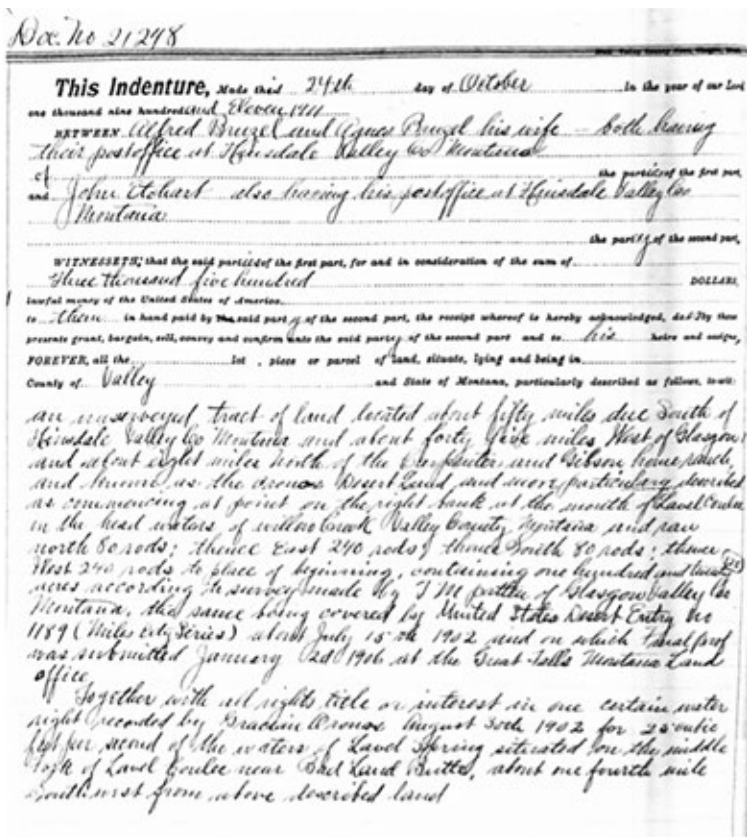 Doc. No 21248
This Indenture, Made this 24th day of October in the year of our Lord
one thousand nine hundred and Eleven 1911
BETWEEN Alfred and Agnes his wife - both having
their postoffice at Hinsdale Valley Co Montana
of the parties of the first part,
and John also having his postoffice at Hinsdale Valley Co
Montana
the party of the second part,
WITNESSETH; that the said parties of the first part, for and in consideration of the sum of
Three thousand five hundred DOLLARS,
lawful money of the United States of America.
to them in hand paid by the said party of the second part, the receipt whereof is hereby acknowledged, do by these
presents grant, bargain, sell, convey and confirm unto the said party of the second part and to his heirs and assigns,
FOREVER, all the lot , piece or parcel of land, situate, lying and being in
County of Valley and State of Montana, particularly described as follows, to-wit:
an unsurveyed tract of land located about fifty miles due South of
Hinsdale Valley Co Montana and about forty five miles West of Glasgow
and about eight miles North of the Carpenter and Gibson home ranch
and known as the Desert Land and more particulary described
as commencing at point on the right bank at the mouth of Coulee
in the head waters of willow Creek Valley County Montana and ran
north 80 rods; thence East 240 rods; thence South 80 rods; thence
West 240 rods to place of beginning, containing one hundred and twenty
acres according to survey made by T M of Glasgow Valley Co
Montana, the same being covered by United States Desert Entry no
1189 (Miles City Series) about July 15th 1902 and on which Final proof
was submitted January 2d 1906 at the Great Falls Montana Land
office
Together with all rights title or interest in one certain water
right recorded by August 30th 1902 for 25 cubic
feet per second of the waters of Spring situated on the middle
fork of Coulee near Bad Land Butte, about one fourth mile
Southwest from above described land